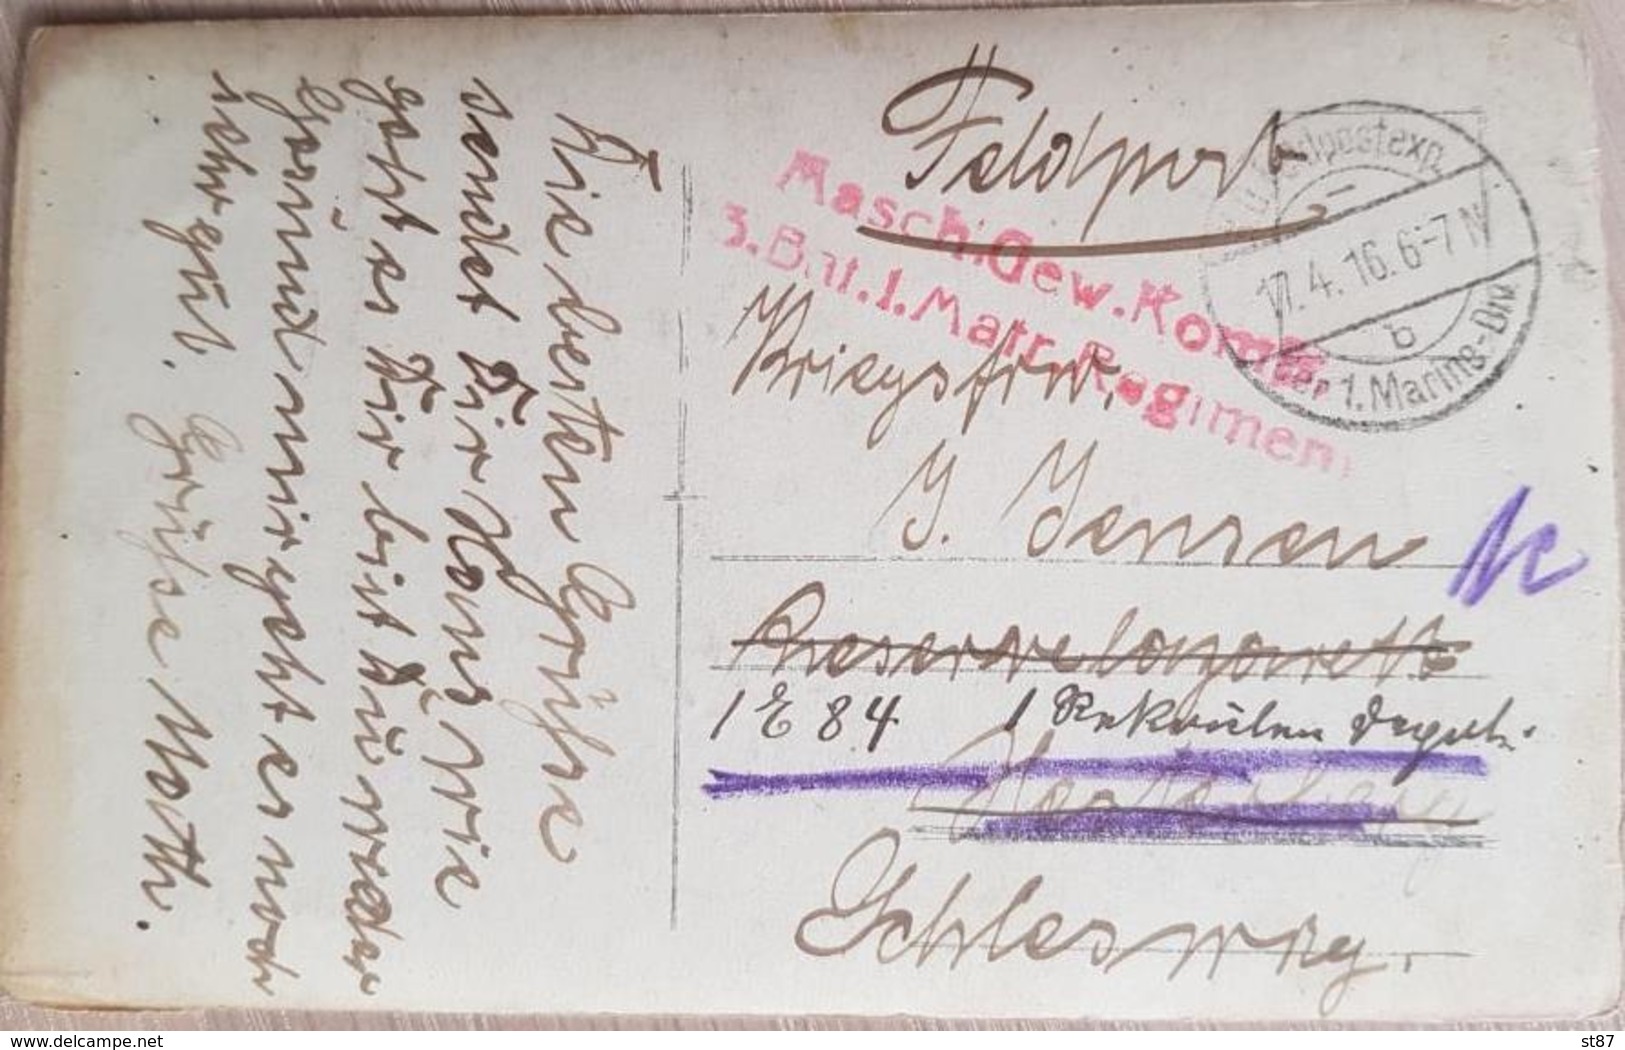 Die besten Grüße
sendet Dir Hans, wie
geht es Dir bist Du wieder
Gesund mir geht es noch
sehr gut. Grüße Moth.
Feldpost
Masch. Gew. Komp.
3. Bat. 1. Matr. Regiment
Feldpostexp.
17.4.16. 6-7 N
b
der 1. Marine-Div.
Kriegsfrw.
J. Jensen
Reservelazarett
1 E 84 1 Rekruten Depot
Schleswig.
delcampe.net
st87